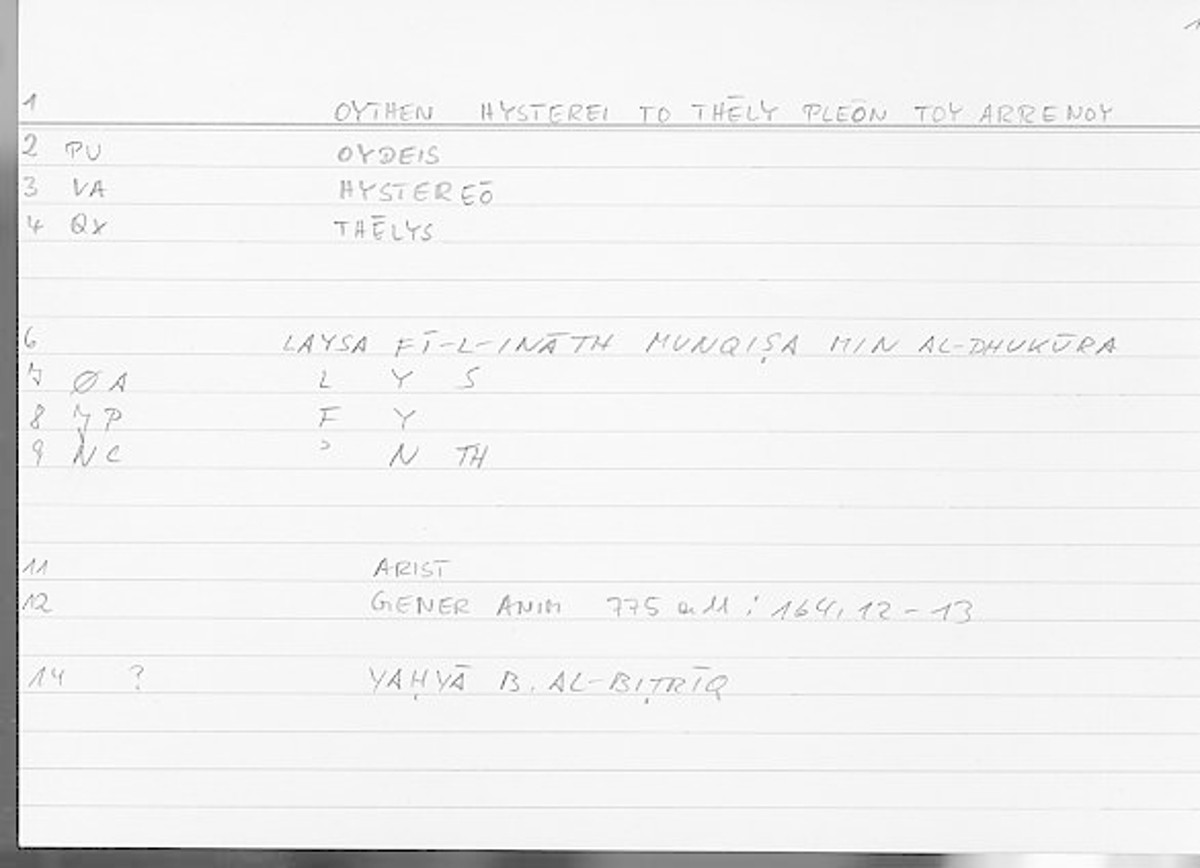 1
1 OYTHEN HYSTEREI TO THĒLY PLEŌN TOY ARRENOY
2 PU OYDEIS
3 VA HYSTEREŌ
4 QX THĒLYS
6 LAYSA FĪ-L-INĀTH MUNQIṢA MIN AL-DHUKŪRA
7 ØA L Y S
8 7P F Y
9 NC ʾ N TH
11 ARIST
12 GENER ANIM 775 a 11 : 164, 12 - 13
14 ? YAḤYĀ B. AL-BIṬRĪQ